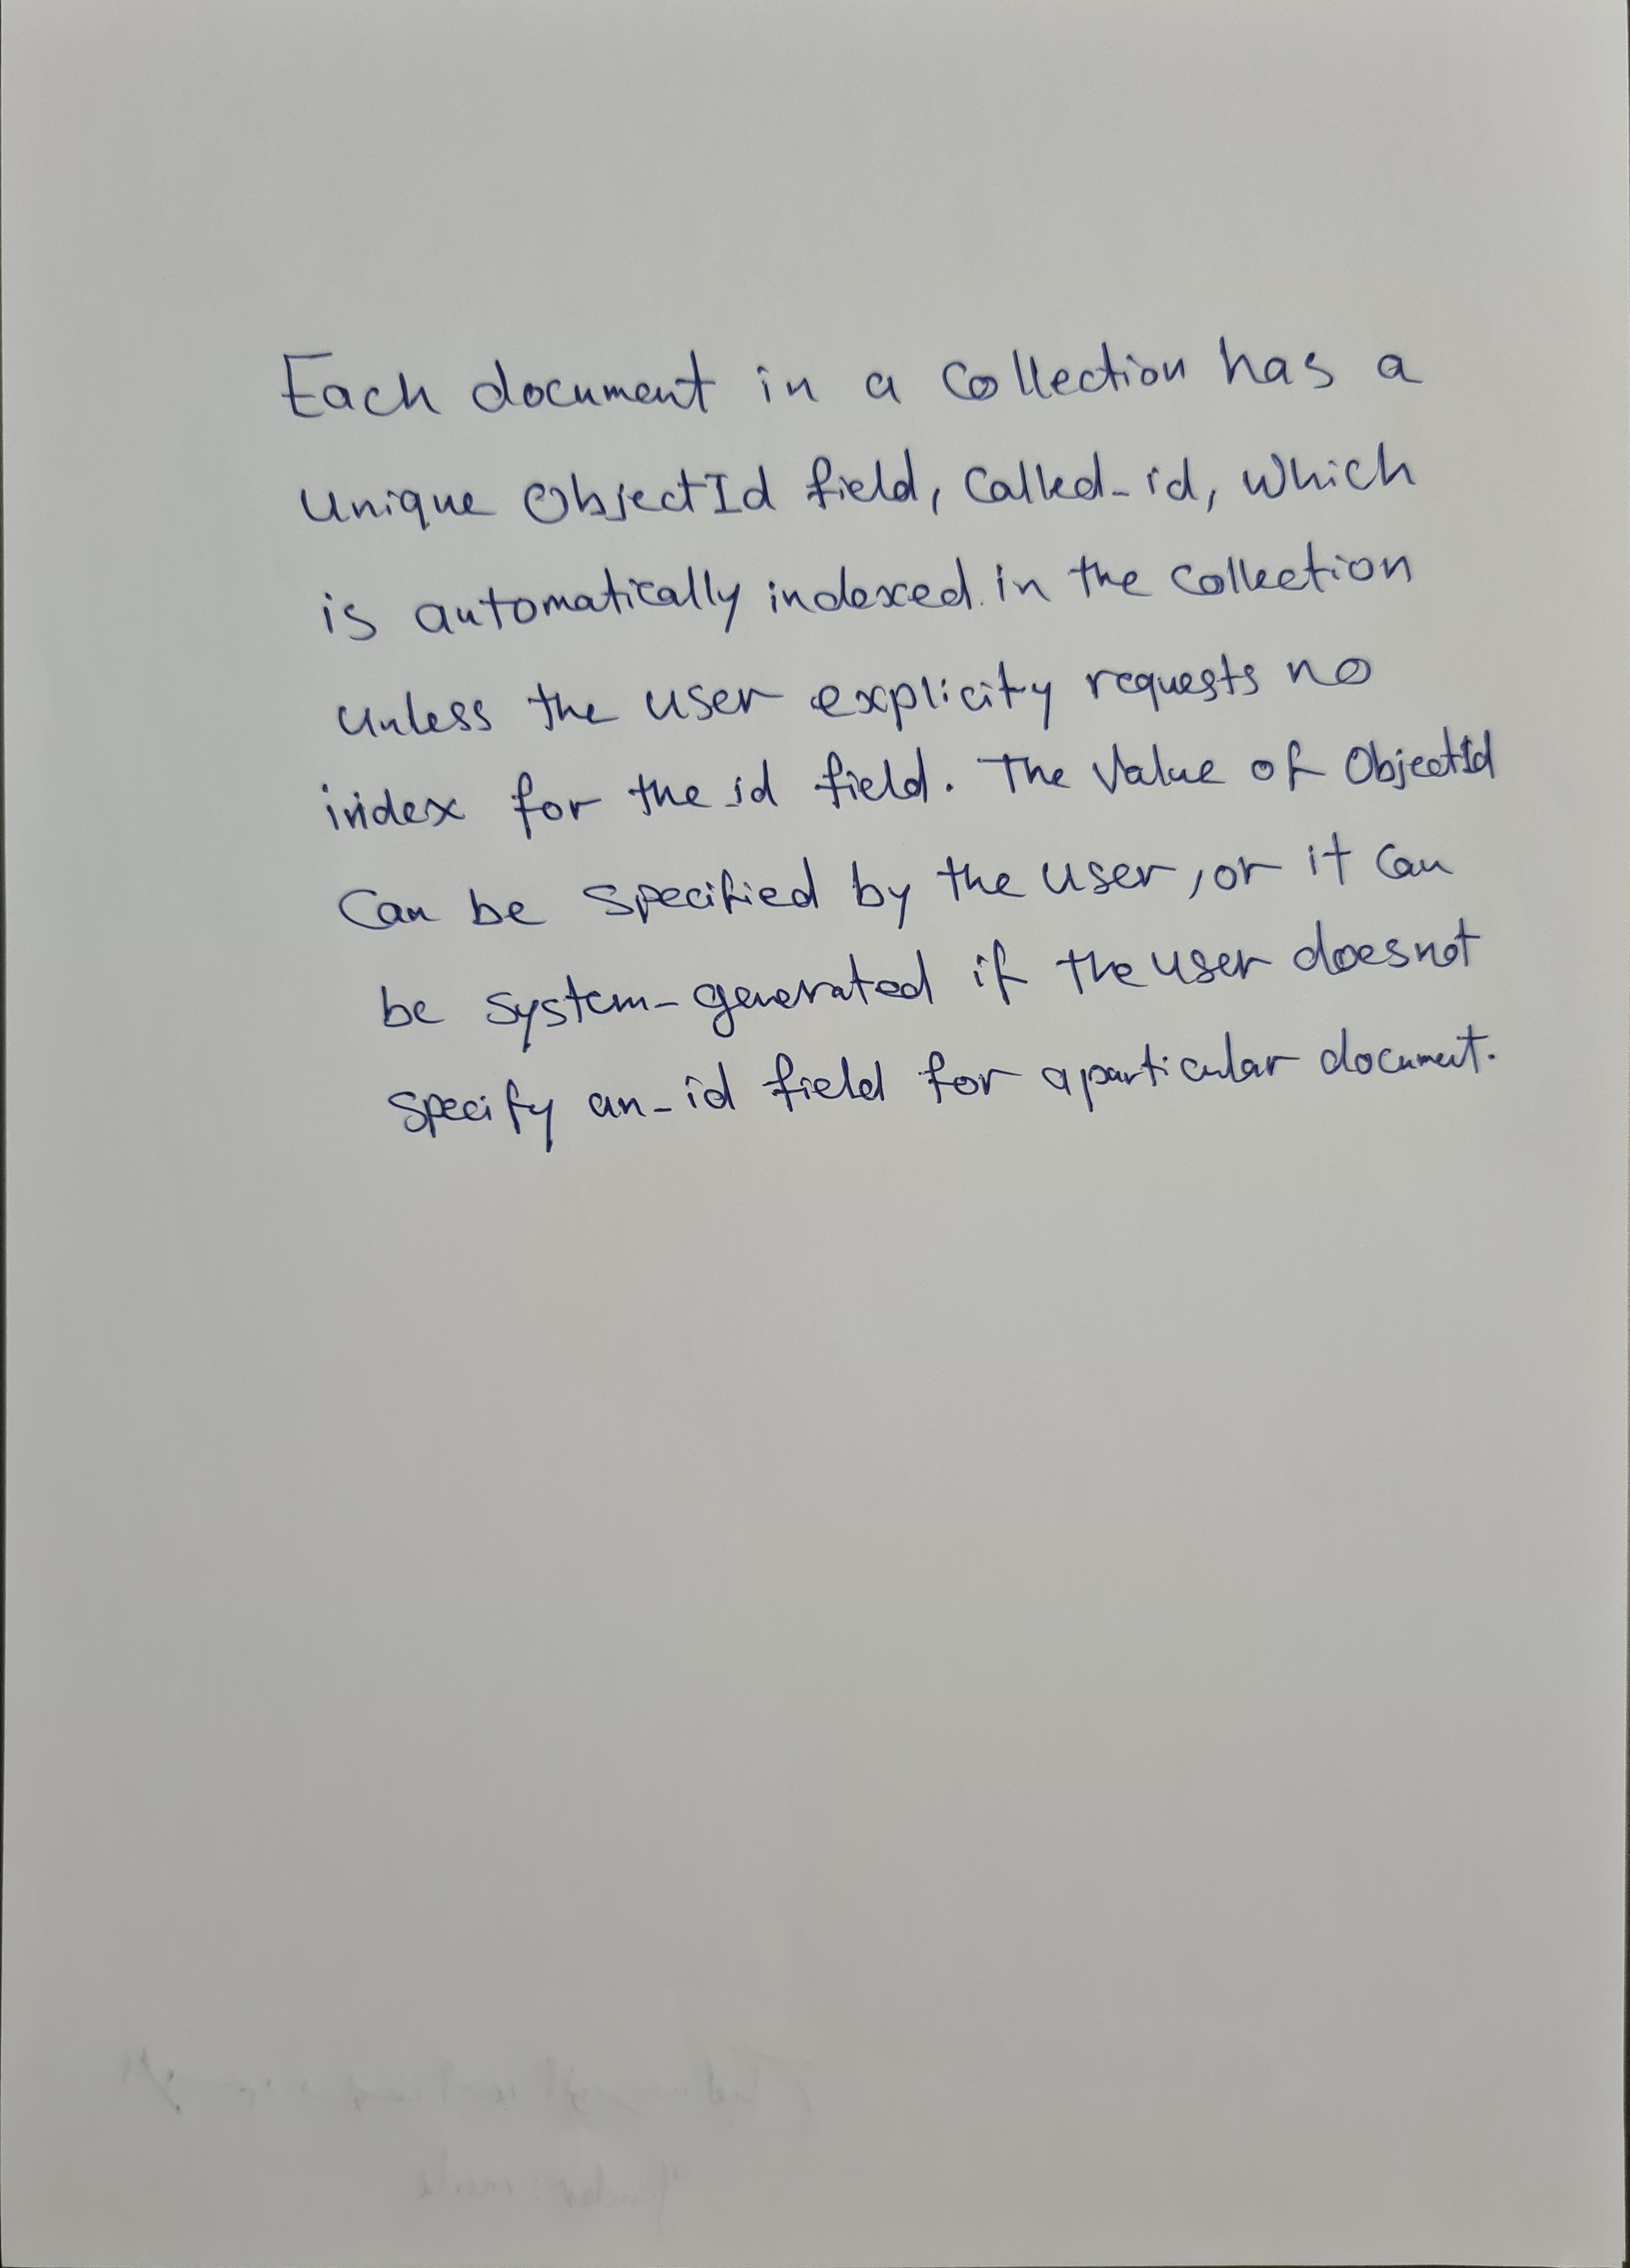 Each document in a collection has a
unique ObjectId field, called _id, which
is automatically indexed in the collection
unless the user explicity requests no
index for the _id field. The value of ObjectId
can be specified by the user, or it can
be system-generated if the user does not
specify an _id field for a particular document.